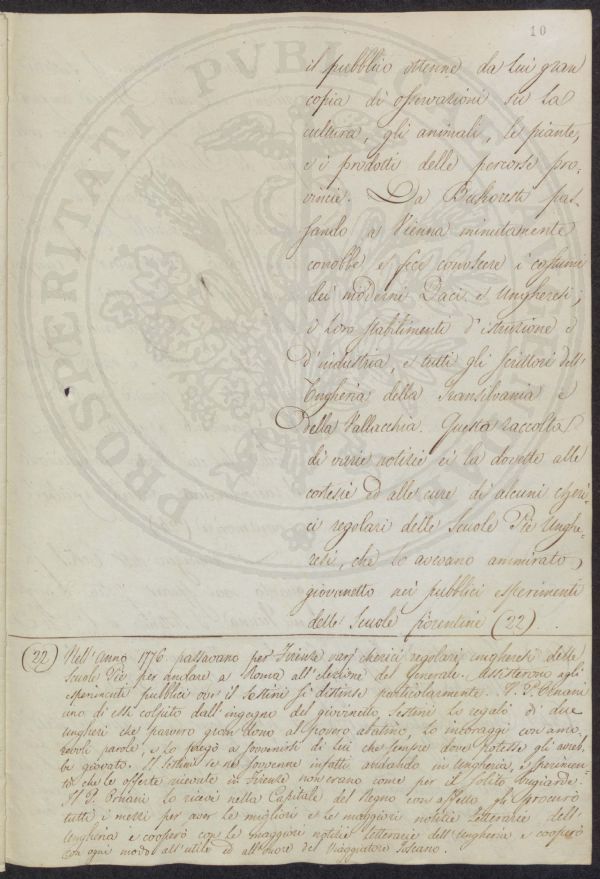 10
il pubblico ottenne da lui gran
copia di osservazioni su la
cultura, gli animali, le piante,
e i prodotti delle percorse pro-
vincie. Da Bukoresti pas-
sando a Vienna minutamente
conobbe e fece conoscere i costumi
dei moderni Daci e Ungheresi;
i loro stabilimenti d'istruzione e
d'industria, e tutti gli scrittori dell'
Ungheria della Transilvania e
della Vallacchia. Questa raccolta
di varie notizie ei la dovette alle
cortesie ed alle cure di alcuni cheri-
ci regolari delle Scuole Pie Unghe-
resi, che lo avevano ammirato
giovinetto nei pubblici esperimenti
delle Scuole fiorentine (22).
(22) Nell'Anno 1776 passavano per Firenze varj cherici regolari ungheresi delle
Scuole Pie per andare a Roma all'elezione del Generale. Assisterono agli
esperimenti pubblici ove il Sestini si distinse particolarmente. Il P.
uno di essi colpito dall'ingegno del giovinetto Sestini lo regalò di due
ungheri che parvero gran dono al povero abatino, lo incoraggì con amo-
revoli parole, e lo pregò a sovvenirsi di lui che sempre dove potesse gli avreb-
be giovato. Il Sestini se ne sovvenne infatti andando in Ungheria, e sperimen-
tò che le offerte ricevute in Firenze non erano come per il solito bugiarde.
Il P. lo ricevè nella Capitale del Regno con affetto gli procurò
tutti i mezzi per aver le migliori e le maggiori notizie letterarie dell'
Ungheria e cooperò con le maggiori notizie letterarie dell'Ungheria e cooperò
con ogni modo all'utile ed all'onore del Viaggiatore Toscano.
PROSPERITATI PUBLICAE